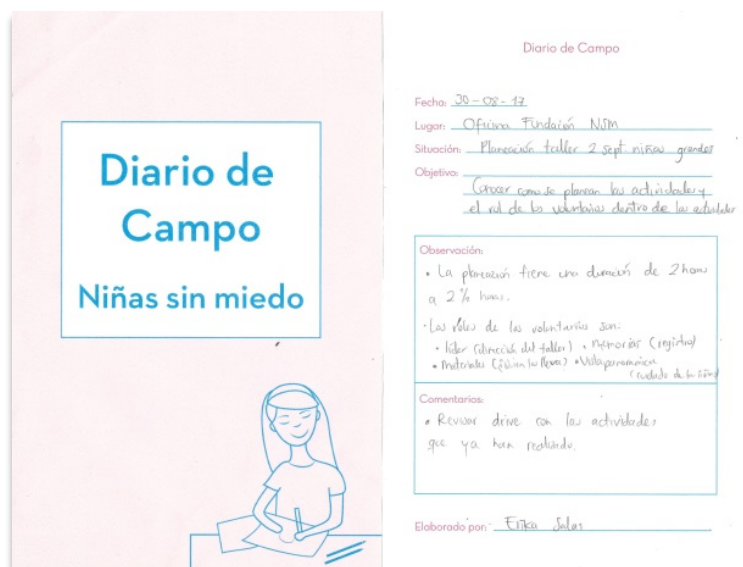 Diario de
Campo
Niñas sin miedo
Diario de Campo
Fecha: 30-08-17
Lugar: Oficina Fundación NSM
Situación: Planeación taller 2 sept niñas grandes
Objetivo:
Conocer como se planean las actividades y
el rol de los voluntarios dentro de las actividades
Observación:
• La planeación tiene una duración de 2 horas
a 2 ½ horas.
• Los roles de los voluntarios son:
• líder (dirección del taller) • Memorias (registro)
• Materiales (quien los lleva) • Vista panorámica
(cuidado de las niñas)
Comentarios:
• Revisar drive con las actividades
que ya han realizado.
Elaborado por: Erika Salas